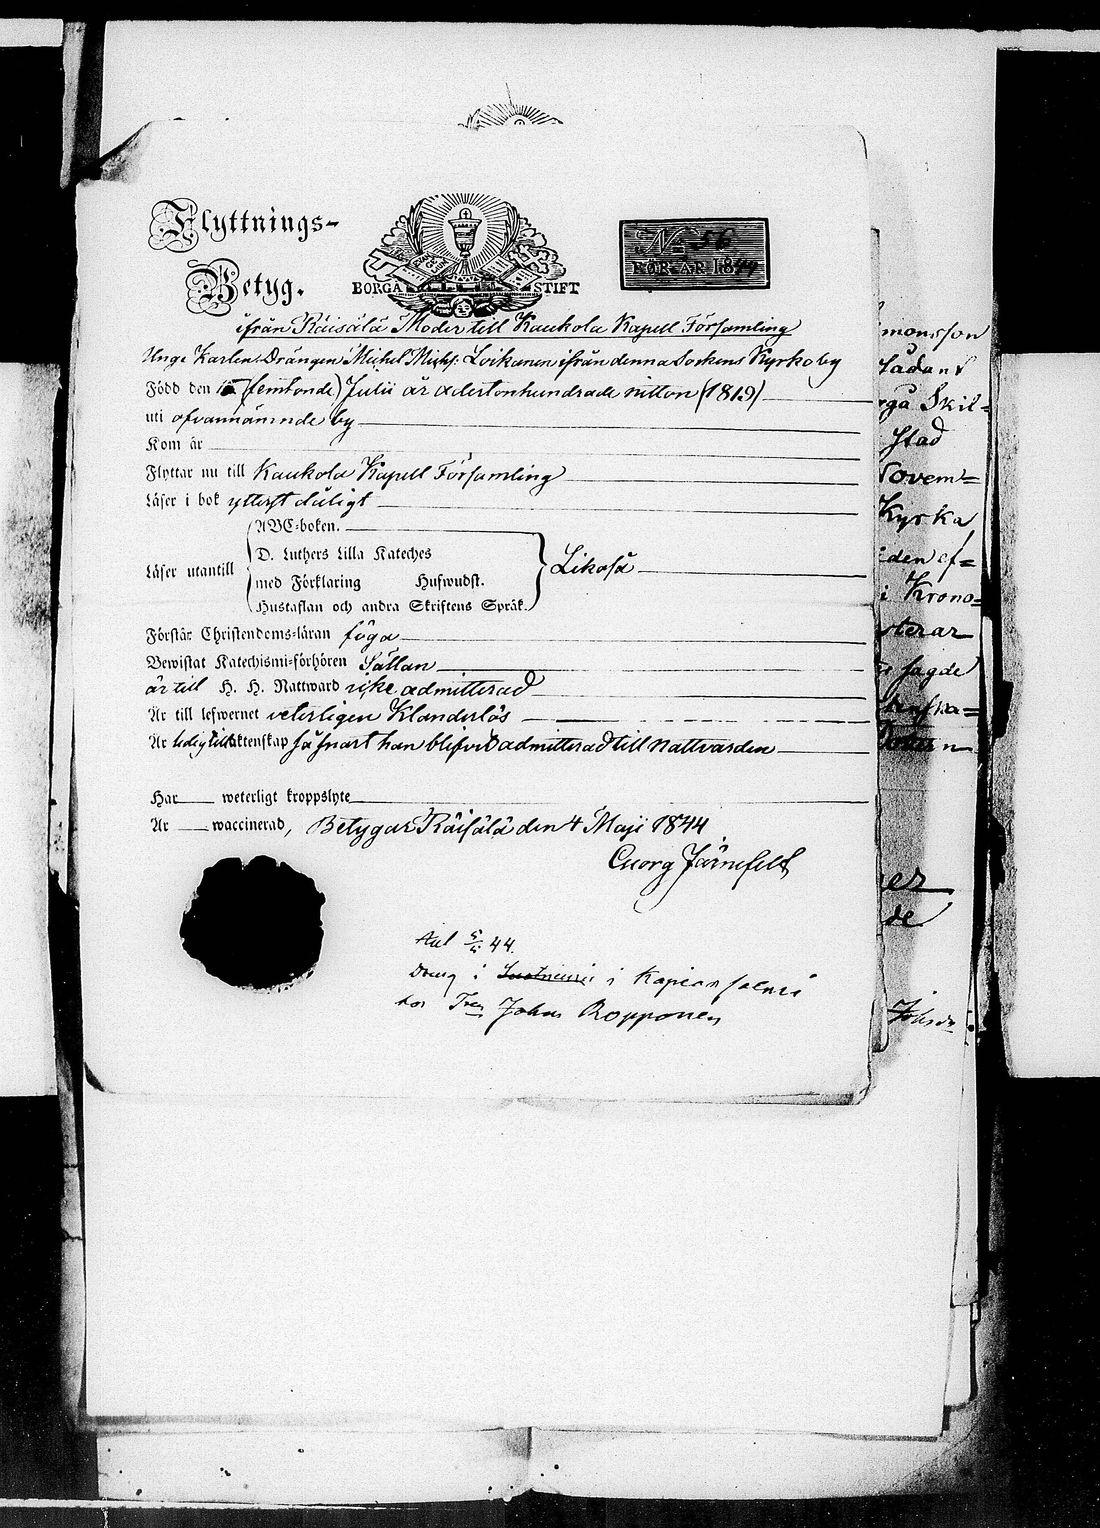 Flyttnings-
Betyg.
BORGÅ STIFT
No 56
FÖR ÅR 1844
ifrån Räisälä Moder till Kaukola Kapell Församling
Unge Karlen Drängen Michel Michs: Loikanen ifrån denna Sockens Kyrkoby
Född den 15 (femtonde) Julii år adertonhundrade nitton (1819)
uti ofvannämnde by
Kom år
Flyttar nu till Kaukola Kapell Församling
Läser i bok ytterst dåligt
Läser utantill
ABC-boken.
D. Luthers Lilla Kateches
med Förklaring Hufwudst.
Hustaflan och andra Skriftens Språk.
Likaså
Förstår Christendoms-läran föga
Bewistat Katechismi-förhören Sällan
är till H. H. Nattward icke admitterad
Är till lefwernet veterligen Klanderlös
Är ledig till äktenskap så snart han blifvit admitterad till Nattvarden
Har weterligt kroppslyte
Är waccinerad, Betygar Räisälä den 4 Maji 1844
Georg Järnefelt
44.
i i
Johan Ropponen
monsson
Sådant
Skil=
stad
Novem=
Kyrka
den ef=
i Krono=
sterar
sagde
de